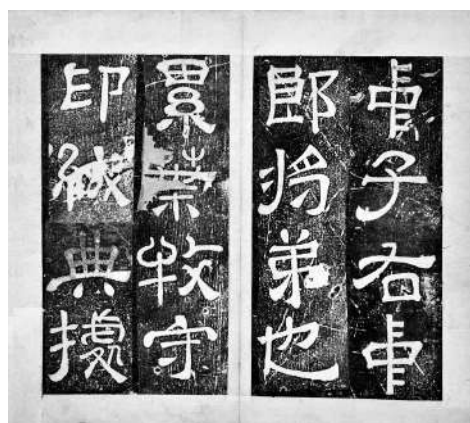 中子右中
郎將弟也
累葉牧守
印紱典據